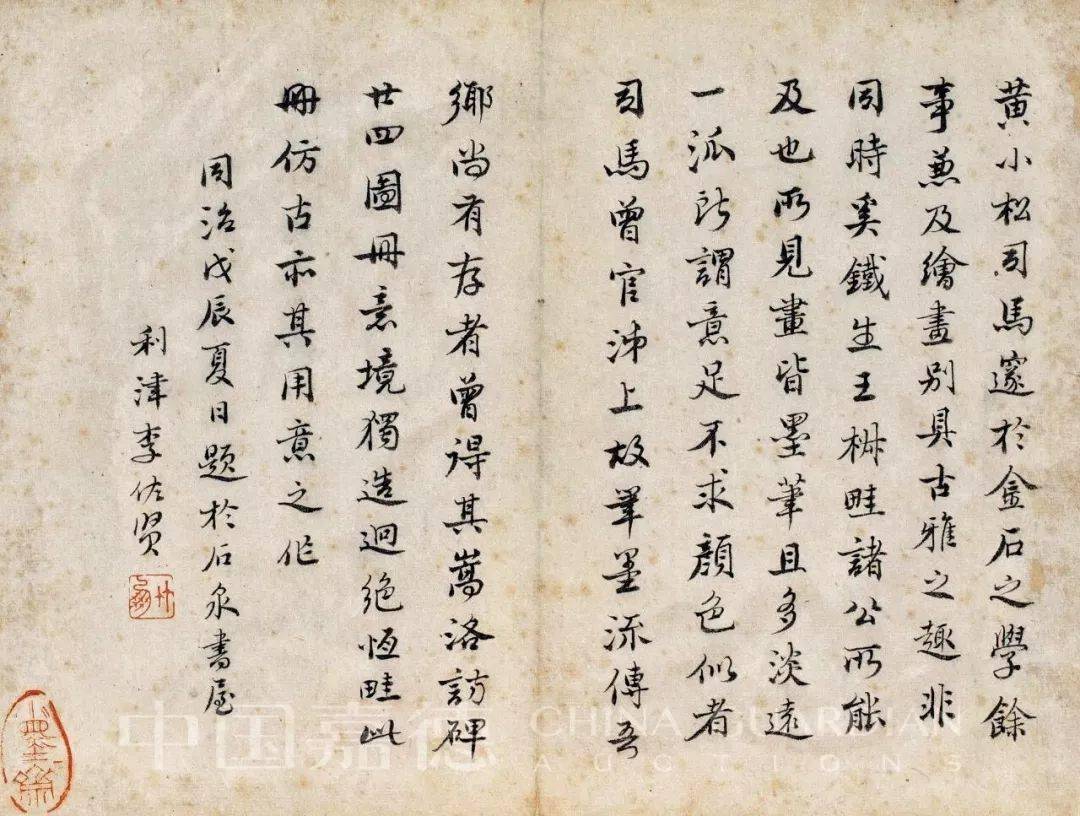 黄小松司馬邃於金石之學餘
事兼及繪畫别具古雅之趣非
同時奚鐵生王椒畦諸公所能
及也所見畫皆墨筆且多淡遠
一派所謂意足不求顏色似者
司馬曾官沛上故筆墨流傳吾
鄉尚有存者曾得其嵩洛訪碑
廿四圖冊意境獨造迥絶恒畦此
冊仿古亦其用意之作
同治戊辰夏日題於石泉書屋
利津李佐贤
中国嘉德
CHINA GUARDIAN
AUCTIONS